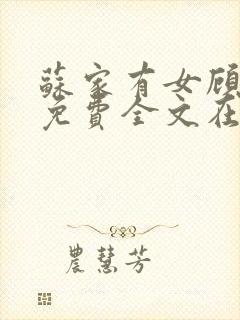 蘇家有女頋
免費全文在
農慧芳